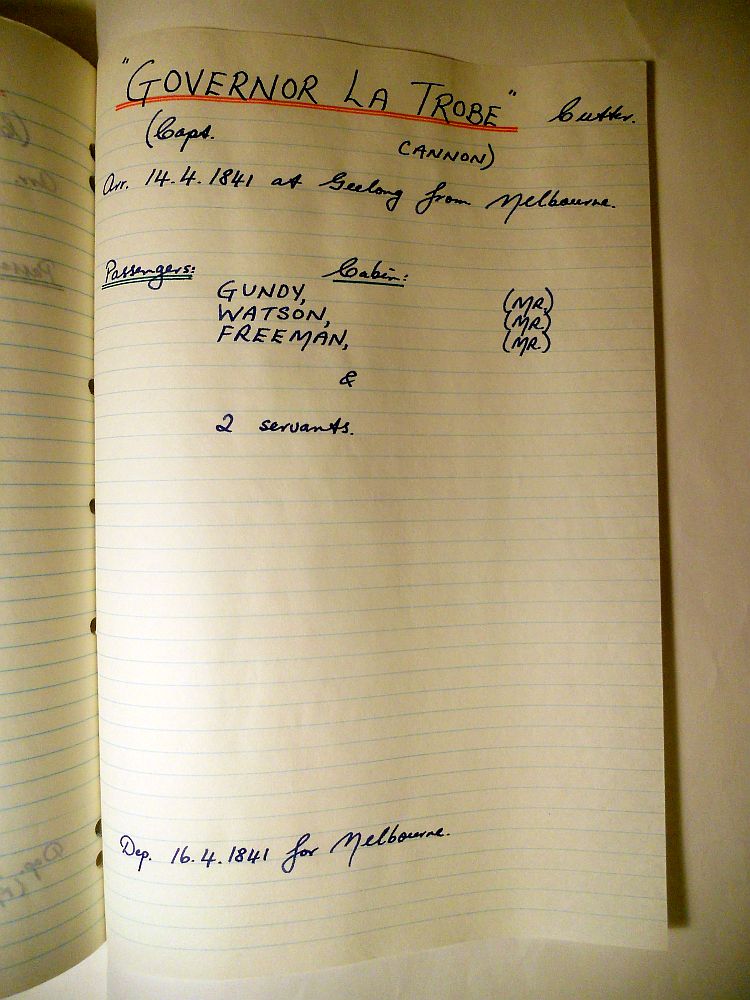 "GOVERNOR LA TROBE" Cutter.
(Capt. CANNON)
Arr. 14.4.1841 at Geelong from Melbourne.
Passengers: Cabin:
GUNDY, (MR.)
WATSON, (MR.)
FREEMAN, (MR.)
&
2 servants.
Dep. 16.4.1841 for Melbourne.